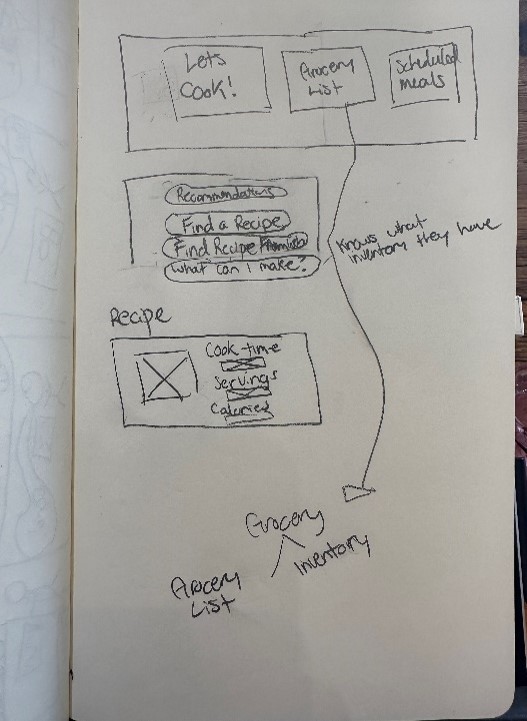 Lets
Cook!
Grocery
List
Scheduled
meals
Recommendations
Find a Recipe
Find Recipe From web
What can I make?
Knows what
inventory they have
Recipe
Cook time
Servings
Calories
Grocery
Inventory
Grocery
List